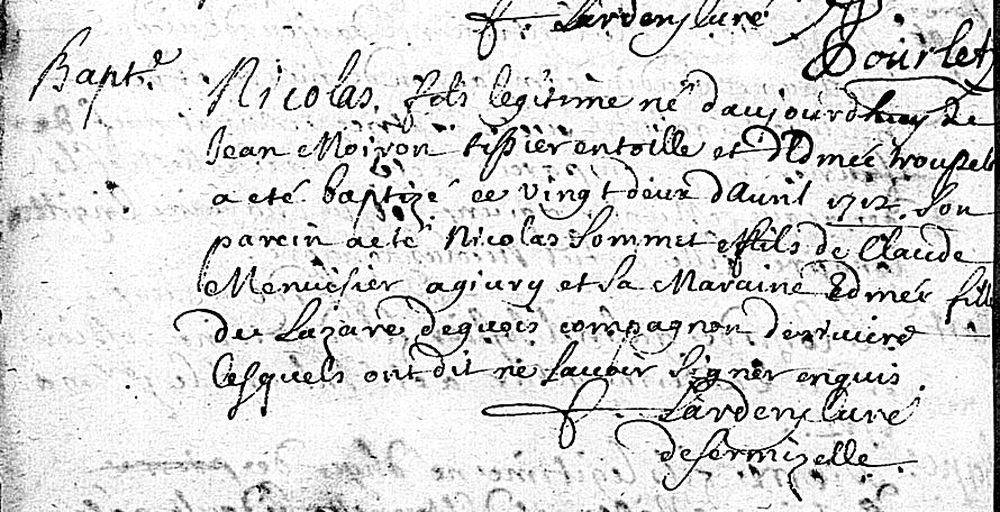 f. Lardery curé
Dourlet
Bapt.e Nicolas. fils legitime né daujourdhuy de
Jean Moiron tissier entoille et dEdmée trouselle
a eté baptizé ce vingt deux davril 1712. Son
parein aeté Nicolas Sommet fils de Claude
Menuisier agiury et Sa Maraine Edmée fille
de Lazare deguois compagnon derriviere
lesquels ont dit ne Savoir Signer enquis.
f. Lardery curé
desermizelle.